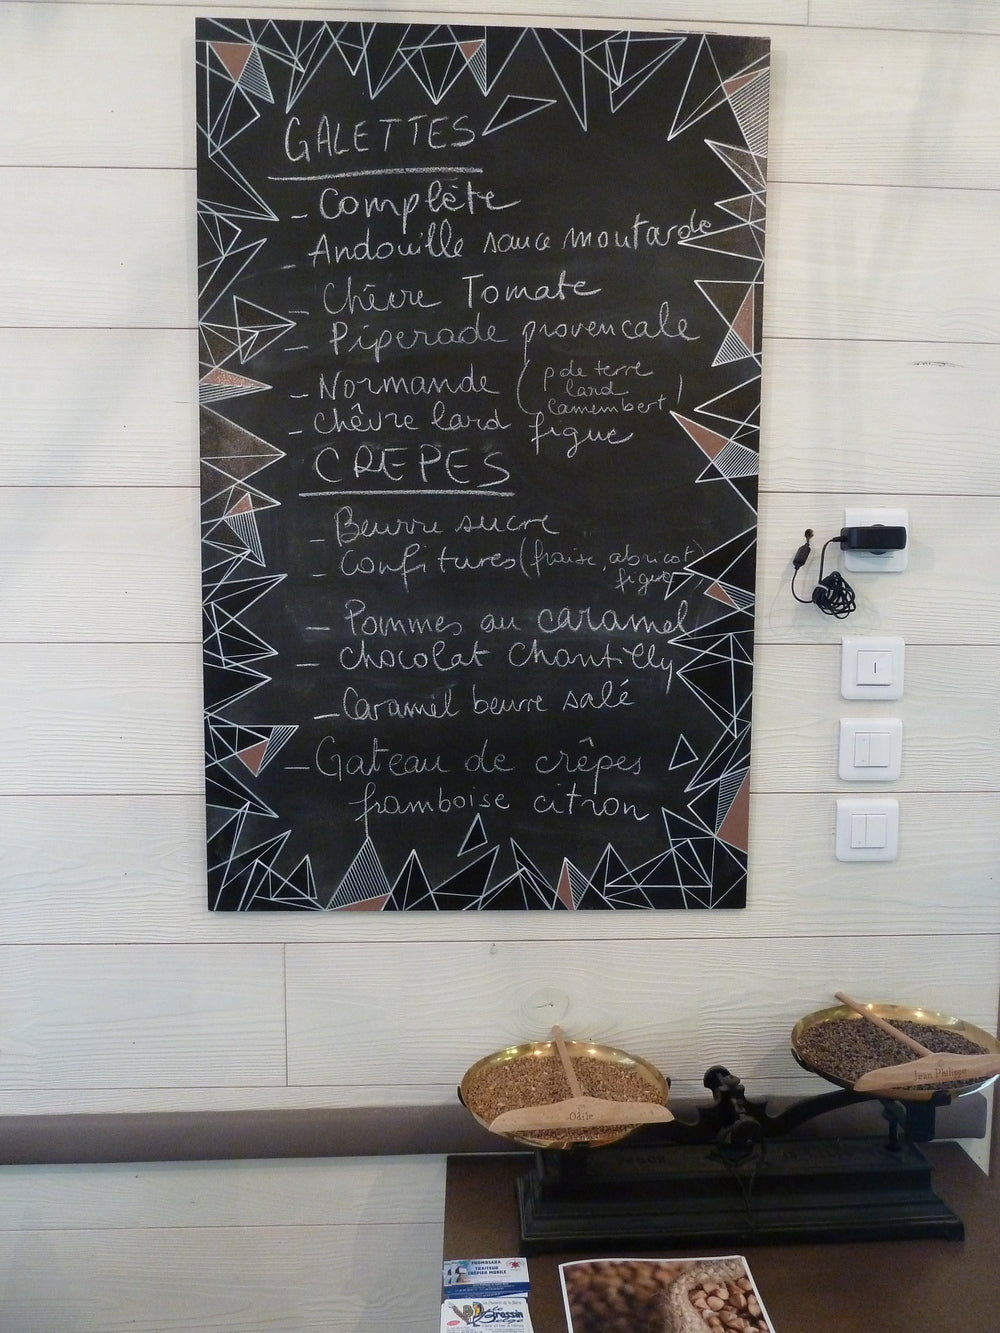 GALETTES
- Complète
- Andouille sauce moutarde
- Chèvre Tomate
- Piperade provencale
- Normande (p de terre
lard
camembert)
- Chêvre lard figue
CREPES
- Beurre sucre
- Confitures (fraise, abricot
figue)
- Pommes au caramel
- Chocolat Chantilly
- Caramel beurre salé
- Gateau de crêpes
framboise citron
Odile
Jean Philippe
FROMOSABA
TRAITEUR
CREPIER MOBILE